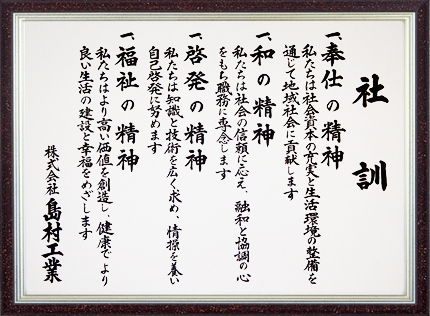 社訓
一、奉仕の精神
私たちは社会資本の充実と生活環境の整備を
通じて地域社会に貢献します
一、和の精神
私たちは社会の信頼に応え、融和と協調の心
をもち職務に専念します
一、啓発の精神
私たちは知識と技術を広く求め、情操を養い
自己啓発に努めます
一、福祉の精神
私たちはより高い価値を創造し、健康でより
良い生活の建設と幸福をめざします
株式会社 島村工業